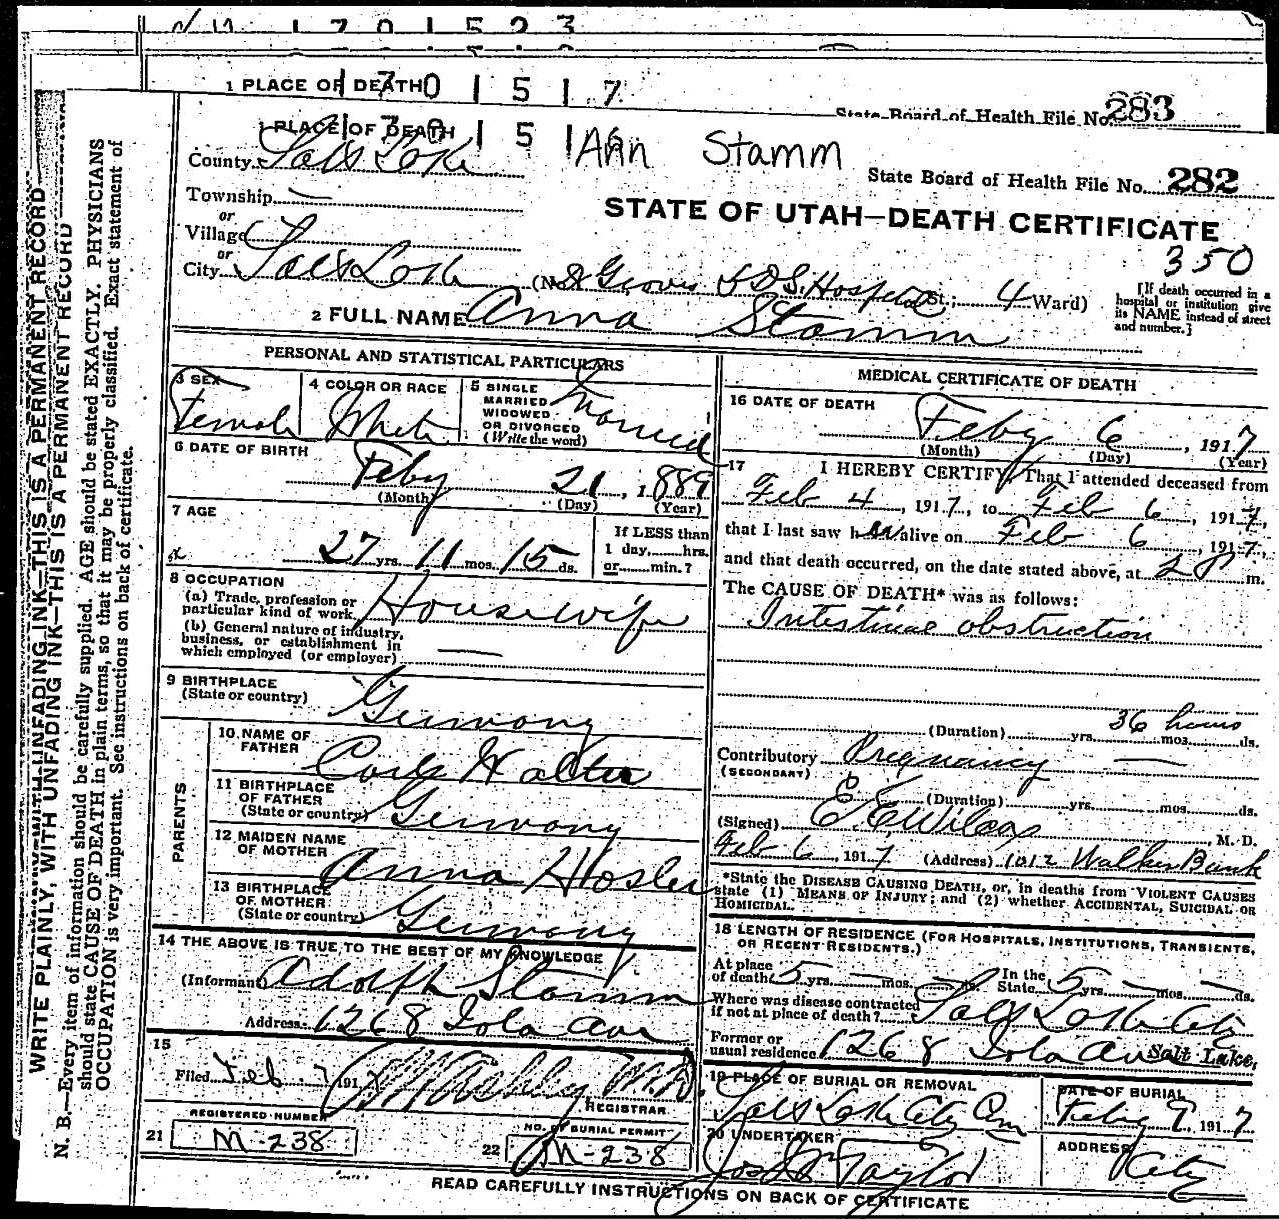 1 7 0 1 5 2 3
1 PLACE OF DEATH 1 7 0 1 5 1 7
State Board of Health File No. 283
1 PLACE OF DEATH 1 5 1 Ann Stamm
County Salt Lake
State Board of Health File No. 282
Township
or
Village
STATE OF UTAH—DEATH CERTIFICATE
350
or
City Salt Lake (No. Groves LDS. Hospital St.; 4 Ward)
[If death occurred in a
hospital or institution give
its NAME instead of street
and number.]
2 FULL NAME Anna Stamm
WRITE PLAINLY, WITH UNFADING INK—THIS IS A PERMANENT RECORD
WRITE PLAINLY, WITH UNFADING INK—THIS IS A PERMANENT RECORD
N. B.—Every item of information should be carefully supplied. AGE should be stated EXACTLY. PHYSICIANS
should state CAUSE OF DEATH in plain terms, so that it may be properly classified. Exact statement of
OCCUPATION is very important. See instructions on back of certificate.
PERSONAL AND STATISTICAL PARTICULARS
3 SEX
Female
4 COLOR OR RACE
White
5 SINGLE
MARRIED
WIDOWED
OR DIVORCED
(Write the word)
Married
6 DATE OF BIRTH
Feby 21, 1889
(Month) (Day) (Year)
7 AGE
27 yrs. 11 mos. 15 ds.
If LESS than
1 day,......hrs.
or......min.?
8 OCCUPATION
(a) Trade, profession or
particular kind of work
Housewife
(b) General nature of industry,
business, or establishment in
which employed (or employer)
9 BIRTHPLACE
(State or country)
Germany
PARENTS
10 NAME OF
FATHER
Carl Walter
11 BIRTHPLACE
OF FATHER
(State or country)
Germany
12 MAIDEN NAME
OF MOTHER
Anna Hosler
13 BIRTHPLACE
OF MOTHER
(State or country)
Germany
14 THE ABOVE IS TRUE TO THE BEST OF MY KNOWLEDGE
(Informant) Adolph Stamm
Address 1268 Iola Ave
15
Filed Feb 7 191 Ashby M.D.
REGISTRAR
REGISTERED NUMBER
21 M-238
NO. OF BURIAL PERMIT
22 M-238
MEDICAL CERTIFICATE OF DEATH
16 DATE OF DEATH
Feby 6, 1917
(Month) (Day) (Year)
17 I HEREBY CERTIFY, That I attended deceased from
Feb 4, 1917, to Feb 6, 1917,
that I last saw her alive on Feb 6, 1917,
and that death occurred, on the date stated above, at 2 m.
The CAUSE OF DEATH* was as follows:
Intestinal obstruction
36 hours
(Duration)......yrs......mos......ds.
Contributory Pregnancy
(SECONDARY)
(Duration)......yrs......mos......ds.
(Signed) E. E. Wilcox, M. D.
Feb 6, 1917 (Address) 1012 Walker Bank
*State the DISEASE CAUSING DEATH, or, in deaths from VIOLENT CAUSES
state (1) MEANS OF INJURY; and (2) whether ACCIDENTAL, SUICIDAL OR
HOMICIDAL.
18 LENGTH OF RESIDENCE (FOR HOSPITALS, INSTITUTIONS, TRANSIENTS,
OR RECENT RESIDENTS.)
At place
of death 5 yrs. — mos. — ds.
In the
State 5 yrs. — mos. — ds.
Where was disease contracted
if not at place of death? Salt Lake City
Former or
usual residence 1268 Iola Av Salt Lake,
19 PLACE OF BURIAL OR REMOVAL
Salt Lake City Cem
DATE OF BURIAL
Feby 7 1917
20 UNDERTAKER
Jos Wm Taylor
ADDRESS
City
READ CAREFULLY INSTRUCTIONS ON BACK OF CERTIFICATE